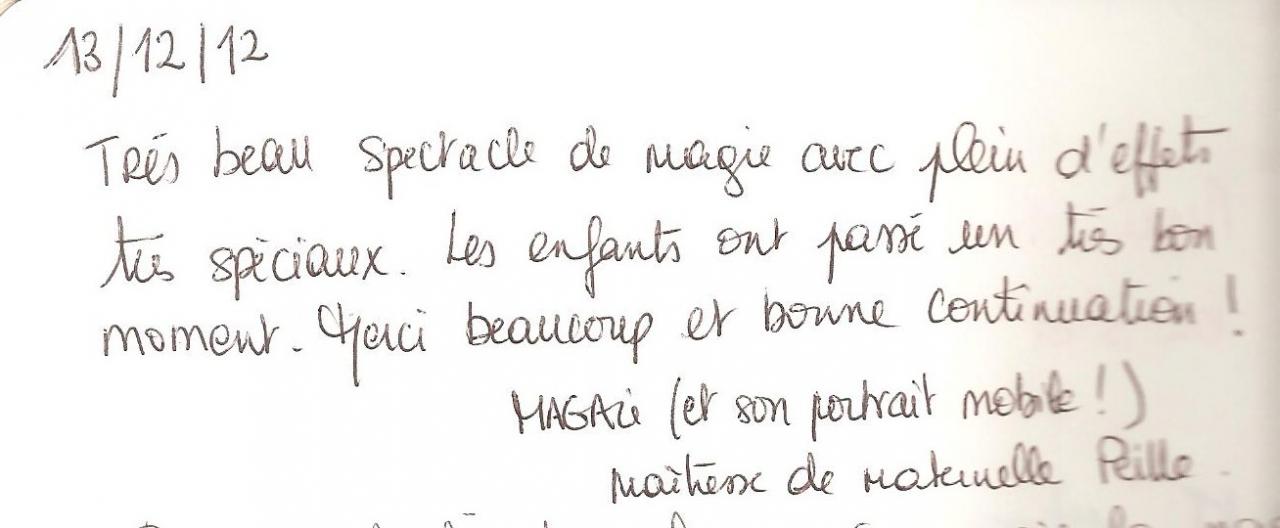 13/12/12
Très beau spectacle de magie avec plein d'effets
très spéciaux. Les enfants ont passé un très bon
moment. Merci beaucoup et bonne continuation !
MAGALi (et son portrait mobile !)
Maîtresse de maternelle Peille.